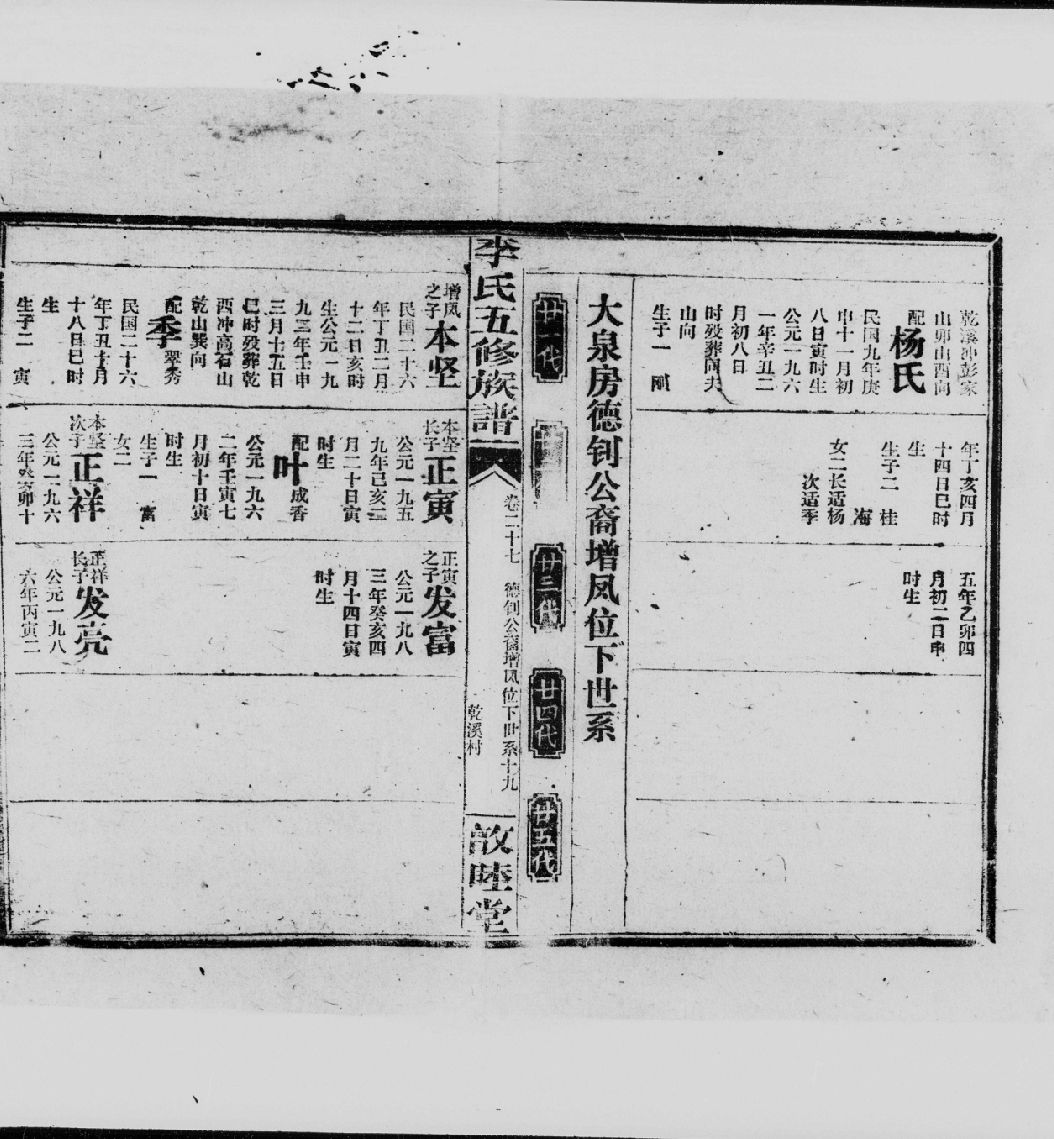 乾溪冲彭家
山卯山酉向
配杨氏
民国九年庚
申十一月初
八日寅时生
公元一九六
一年辛丑二
月初八日
时殁葬
山向
生子一
年丁亥四月
十四日巳时
生
生子二 桂
海
女二长适杨
次适季
五年乙卯四
月初二日申
时生
大泉房德钊公裔增凤位下世系
廿一代
廿三代
廿四代
廿五代
李氏五修族谱
卷二十七 德钊公裔增凤位下世系十九
乾溪村
敦睦堂
增凤之子本坚
民国二十六
年丁丑二月
十二日亥时
生公元一九
九三年壬申
三月十五日
巳时殁葬乾
西冲高石山
乾山巽向
配季翠秀
民国二十六
年丁丑十月
十八日巳时
生
生子二 寅
本坚长子正寅
公元一九五
九年己亥二
月二十日寅
时生
配叶成香
公元一九六
二年壬寅七
月初十日寅
时生
生子一 富
女二
本坚次子正祥
公元一九六
三年癸卯十
正寅之子发富
公元一九八
三年癸亥四
月十四日寅
时生
正祥长子发亮
公元一九八
六年丙寅二